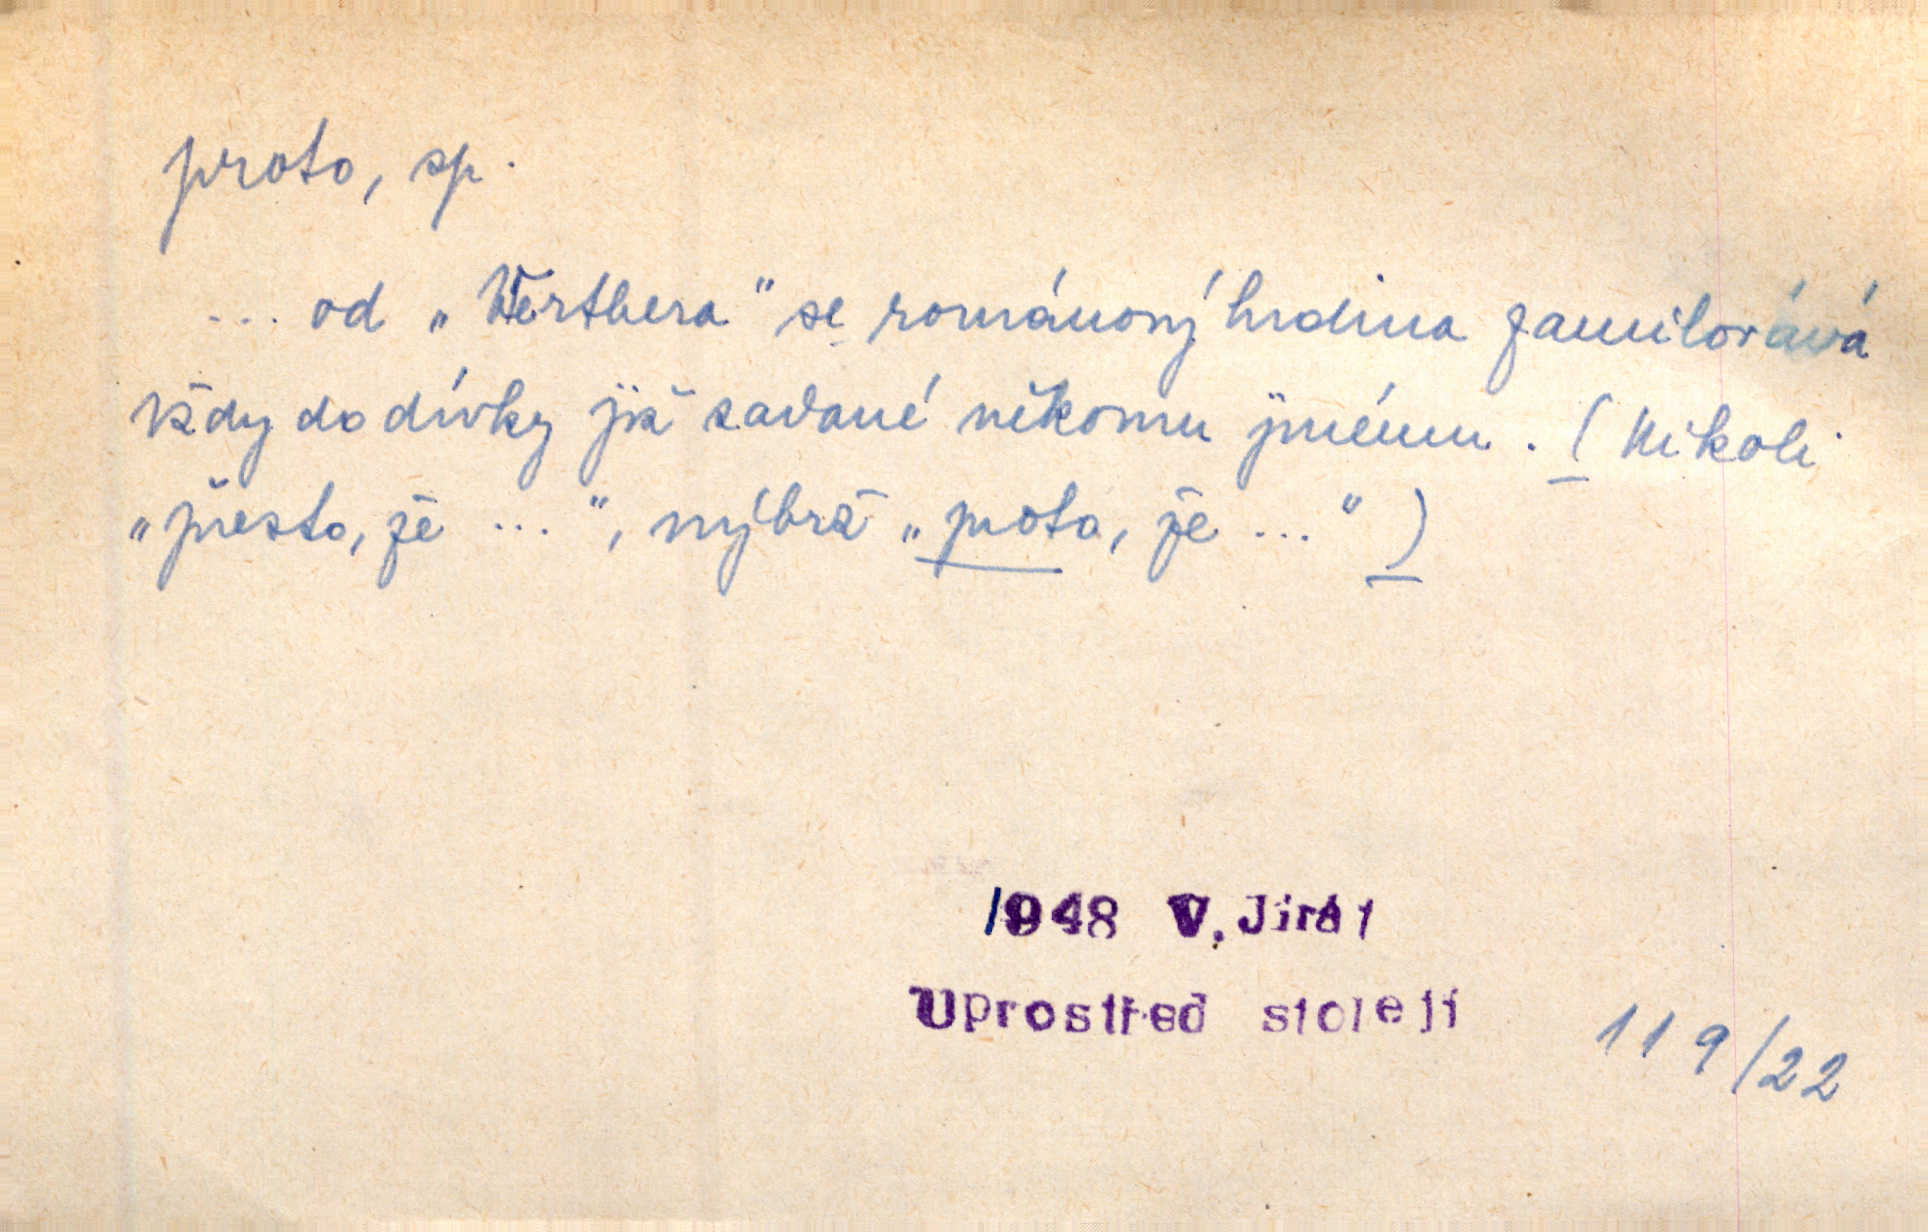 proto, sp.
... od „Werthera" se románový hrdina zamilovává
vždy do dívky již zadané někomu jinému. (Nikoli
„přesto, že ...", nýbrž „proto, že ...")
1948 V. Jirát
Uprostřed století
119/22